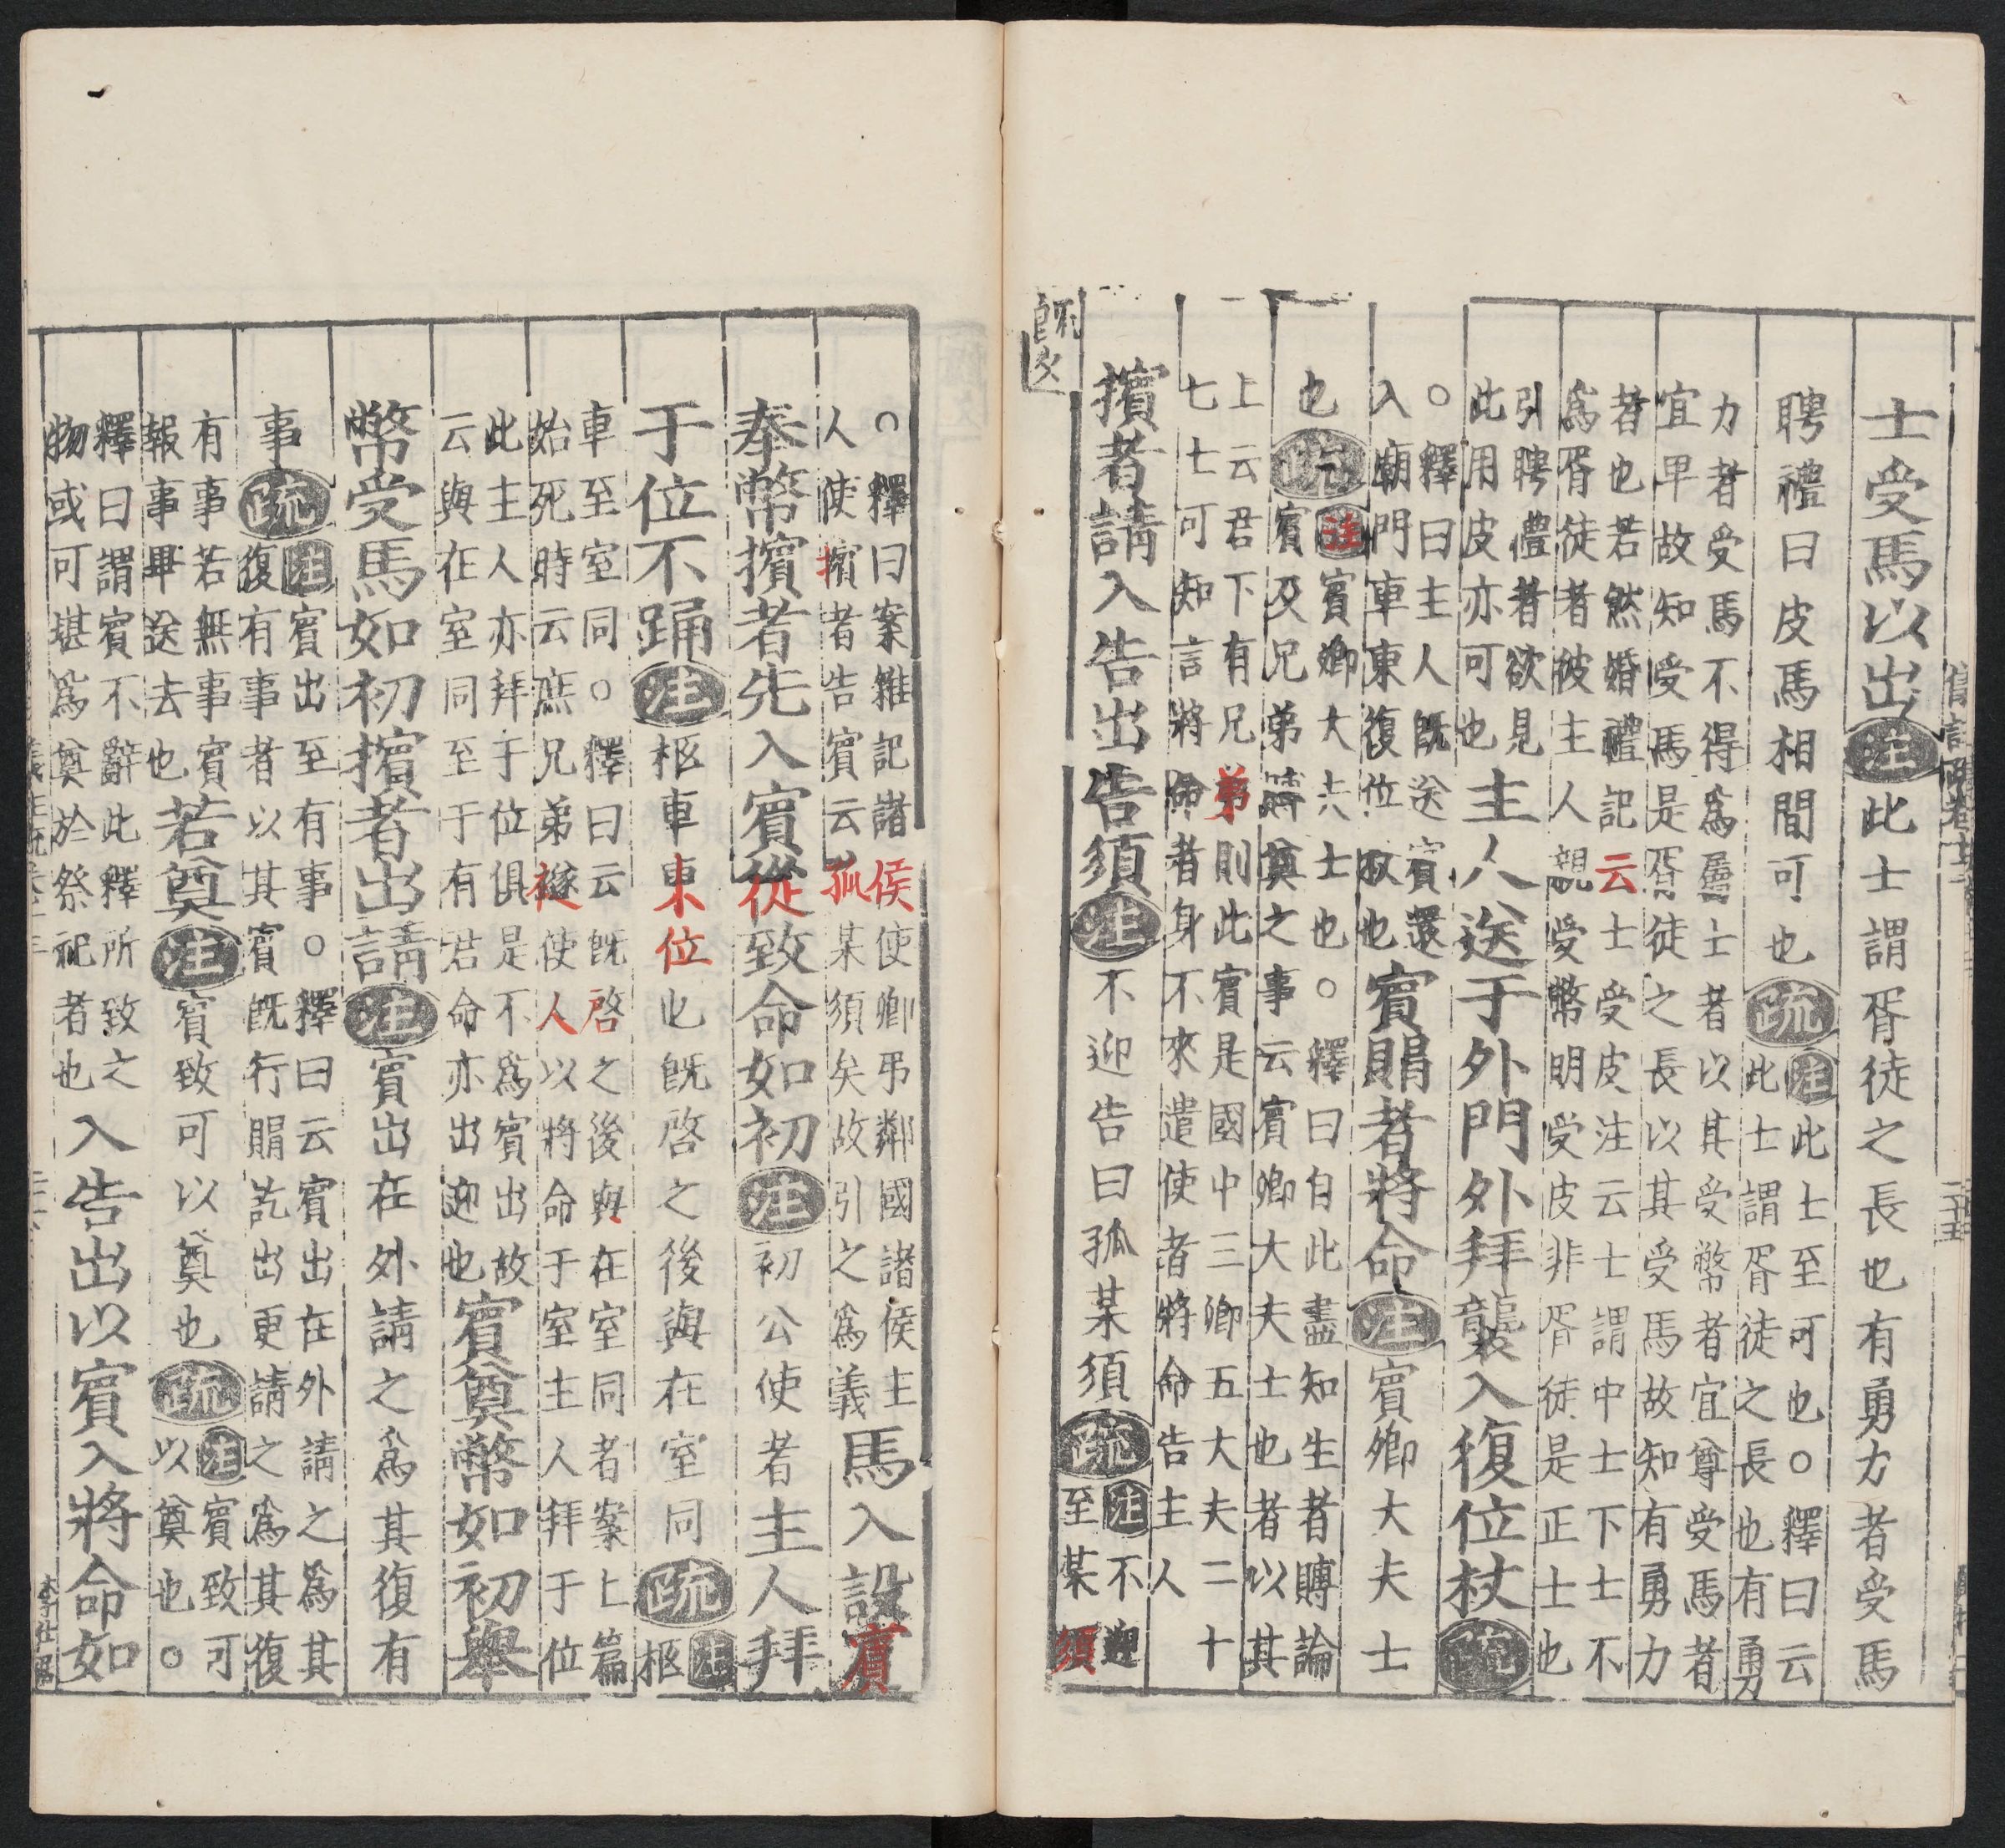 士受馬以出注此士謂胥徒之長也有勇力者受馬
聘禮曰皮馬相間可也疏注此士至可也○釋曰云
此士謂胥徒之長也有勇
力者受馬不得為士者以其受幣者宜尊受馬者
宜卑故知受馬是胥徒之長以其受馬故知有勇力
者也若然婚禮記云士受皮注云士謂中士下士不
為胥徒者彼主人親受幣明受皮非胥徒是正士也
引聘禮者欲見
此用皮亦可也主人送于外門外拜襲入復位杖疏
○釋曰主人既送賓還
入廟門車東復位杖也賓賵者將命注賓卿大夫士
也疏注賓卿大夫士也○釋曰自此盡知生者賻論
賓及兄弟賵奠之事云賓卿大夫士也者以其
上云君下有兄弟則此賓是國中三卿五大夫二十
七士可知言將命者身不來遣使者將命告主人
擯者請入告出告須注不迎告曰孤某須疏注不迎
至某須
○釋曰案雜記諸侯使卿弔鄰國諸侯主
人使擯者告賓云孤某須矣故引之為義馬入設賓
奉幣擯者先入賓從致命如初注初公使者主人拜
于位不踊注柩車東位也既啓之後與在室同疏注
柩
車至室同○釋曰云既啓之後與在室同者案上篇
始死時云庶兄弟襚使人以將命于室主人拜于位
此主人亦拜于位俱是不為賓出故
云與在室同至于有君命亦出迎也賓奠幣如初舉
幣受馬如初擯者出請注賓出在外請之為其復有
事疏注賓出至有事○釋曰云賓出在外請之為其
復有事者以其賓既行賵訖出更請之為其復
有事若無事賓
報事畢送去也若奠注賓致可以奠也疏注賓致可
以奠也○
釋曰謂賓不辭此釋所致之
物或可堪為奠於祭祀者也入告出以賓入將命如